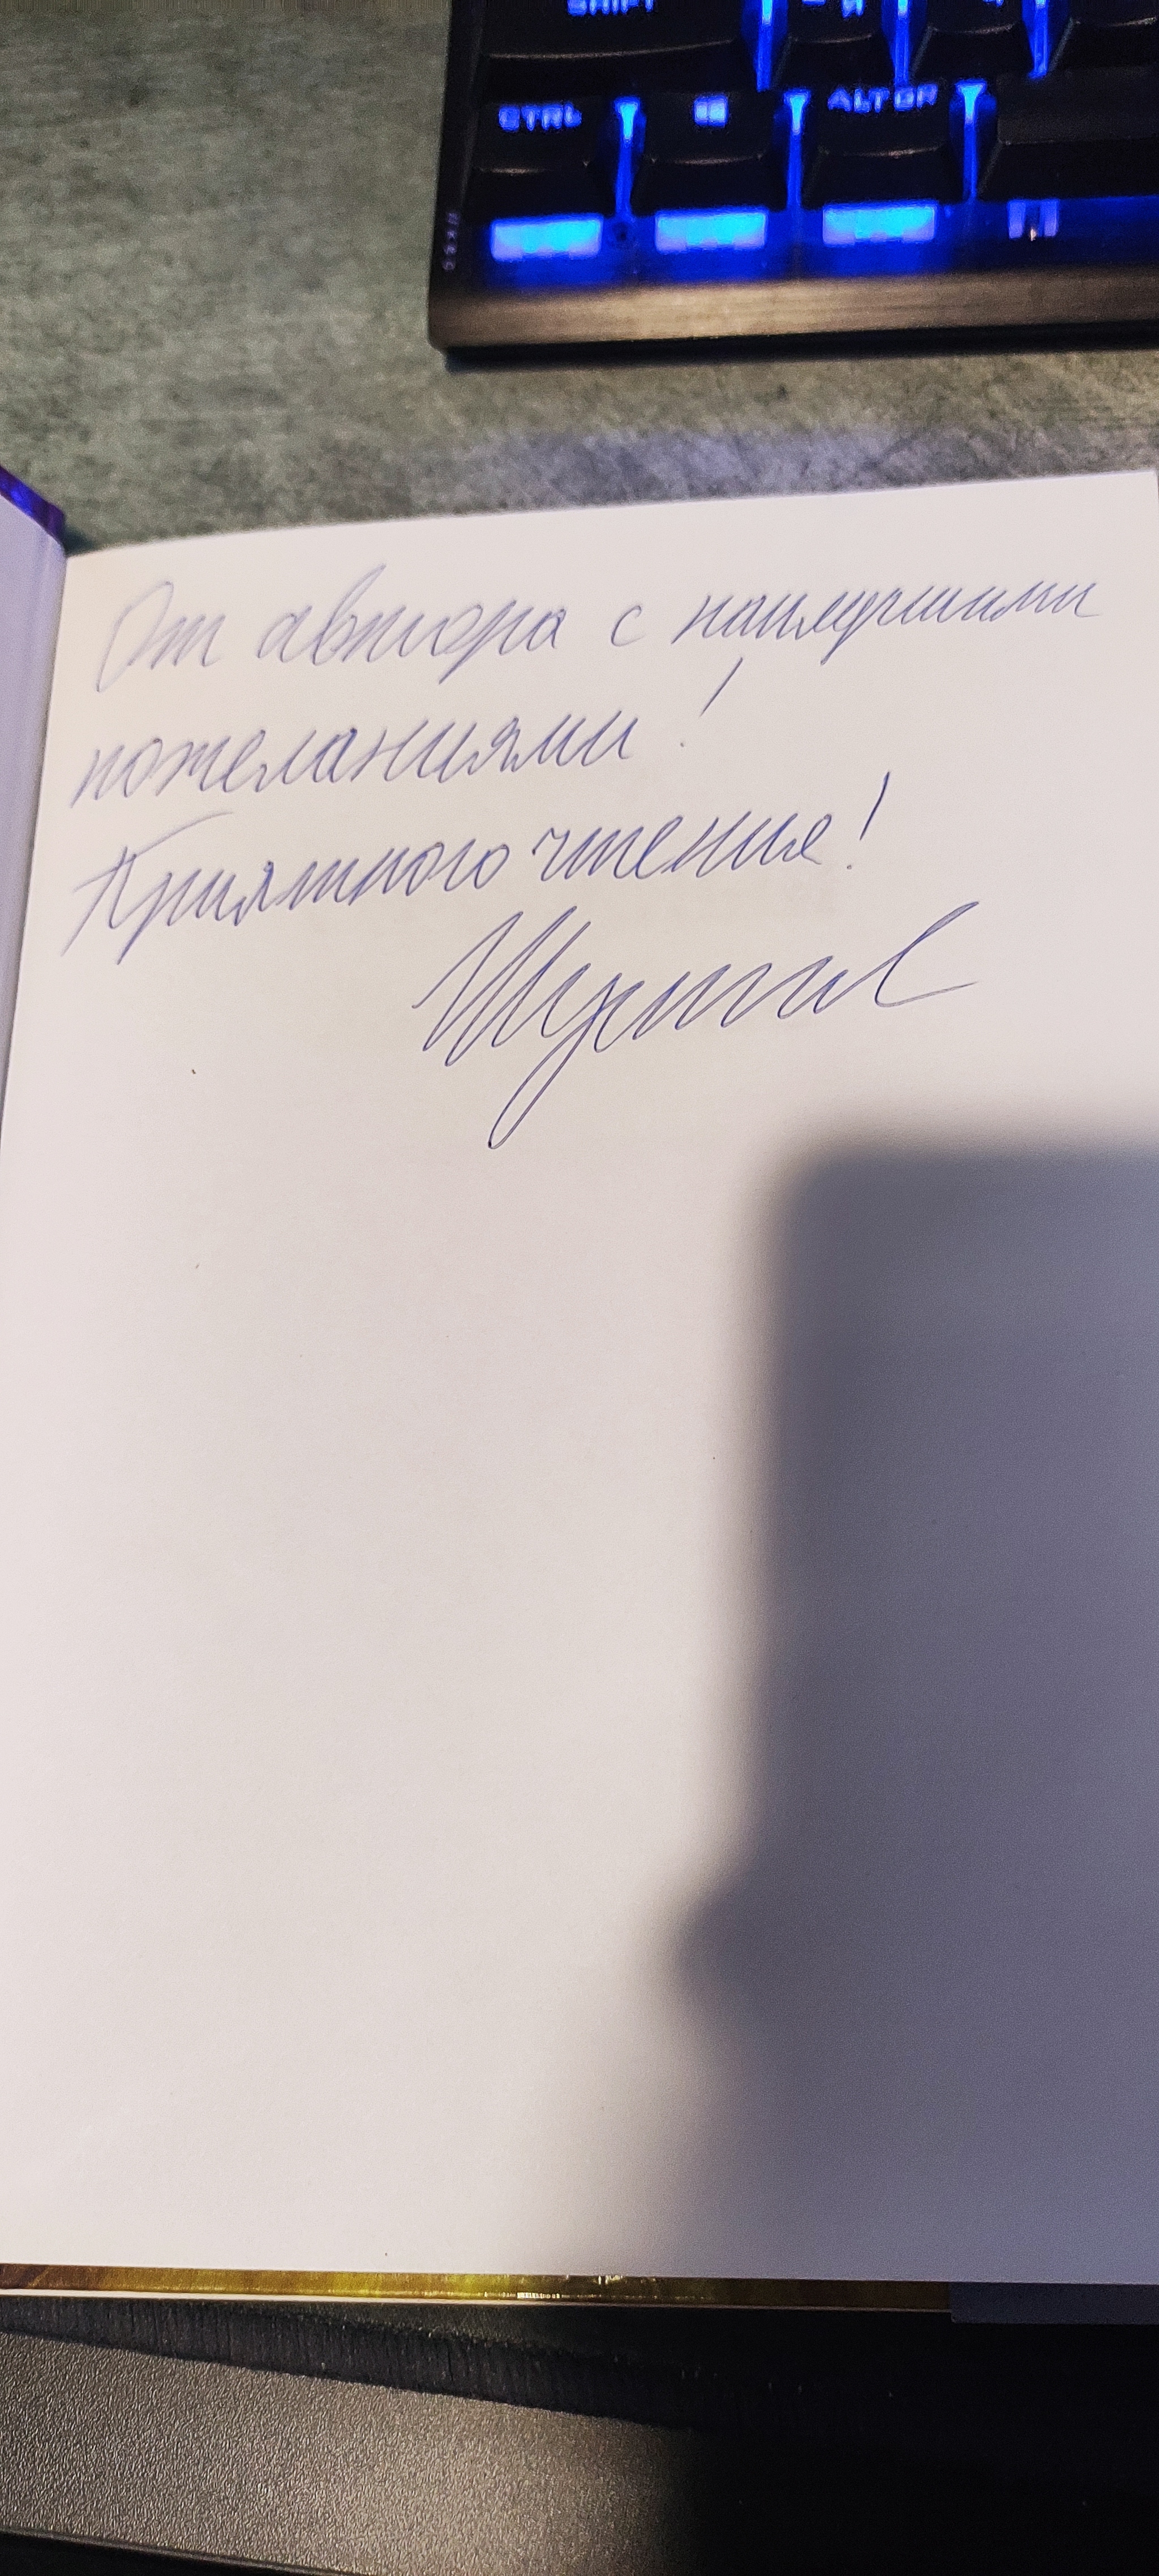 SHIFT
CTRL
ALT GR
От автора с наилучшими
пожеланиями!
Приятного чтения!